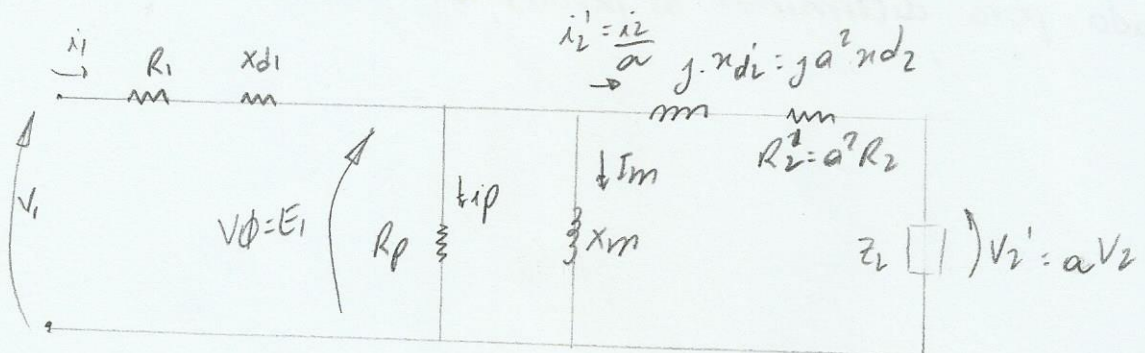 i₁
R₁
xd₁
i₂' = i₂/a
j·xd₂' = ja²xd₂
R₂' = a²R₂
V₁
Vϕ=E₁
Rp
ip
Im
Xm
V₂' = aV₂